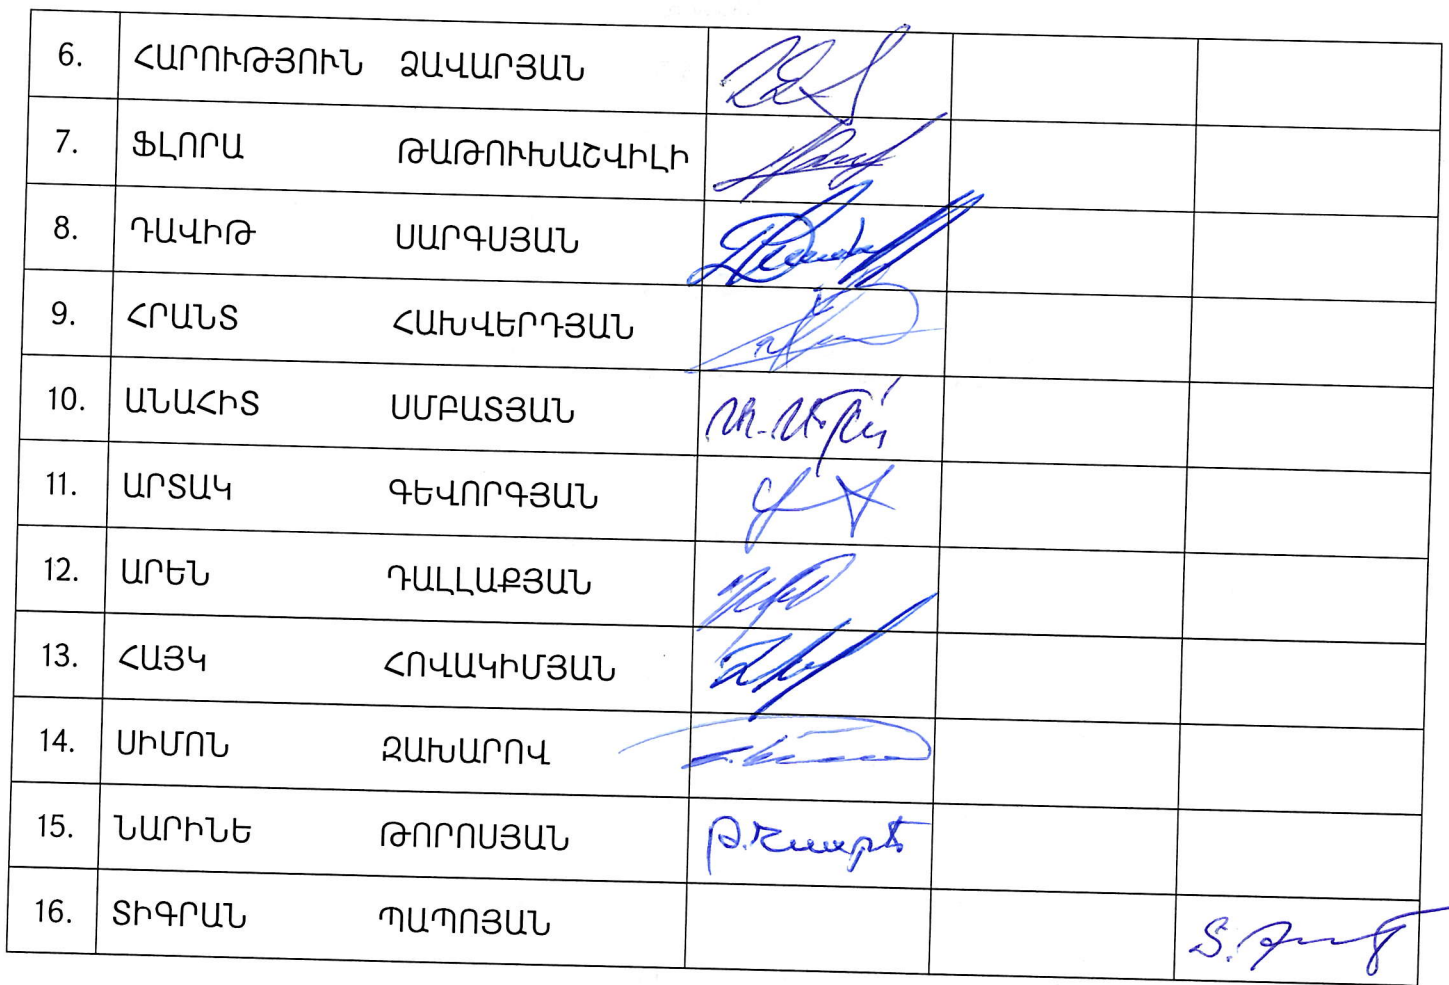 6. ՀԱՐՈՒԹՅՈՒՆ ՁԱՎԱՐՅԱՆ
7. ՖԼՈՐԱ ԹԱԹՈՒԽԱՇՎԻԼԻ
8. ԴԱՎԻԹ ՍԱՐԳՍՅԱՆ
9. ՀՐԱՆՏ ՀԱԽՎԵՐԴՅԱՆ
10. ԱՆԱՀԻՏ ՍՄԲԱՏՅԱՆ
11. ԱՐՏԱԿ ԳԵՎՈՐԳՅԱՆ
12. ԱՐԵՆ ԴԱԼԼԱՔՅԱՆ
13. ՀԱՅԿ ՀՈՎԱԿԻՄՅԱՆ
14. ՍԻՄՈՆ ԶԱԽԱՐՈՎ
15. ՆԱՐԻՆԵ ԹՈՐՈՍՅԱՆ
16. ՏԻԳՐԱՆ ՊԱՊՈՅԱՆ